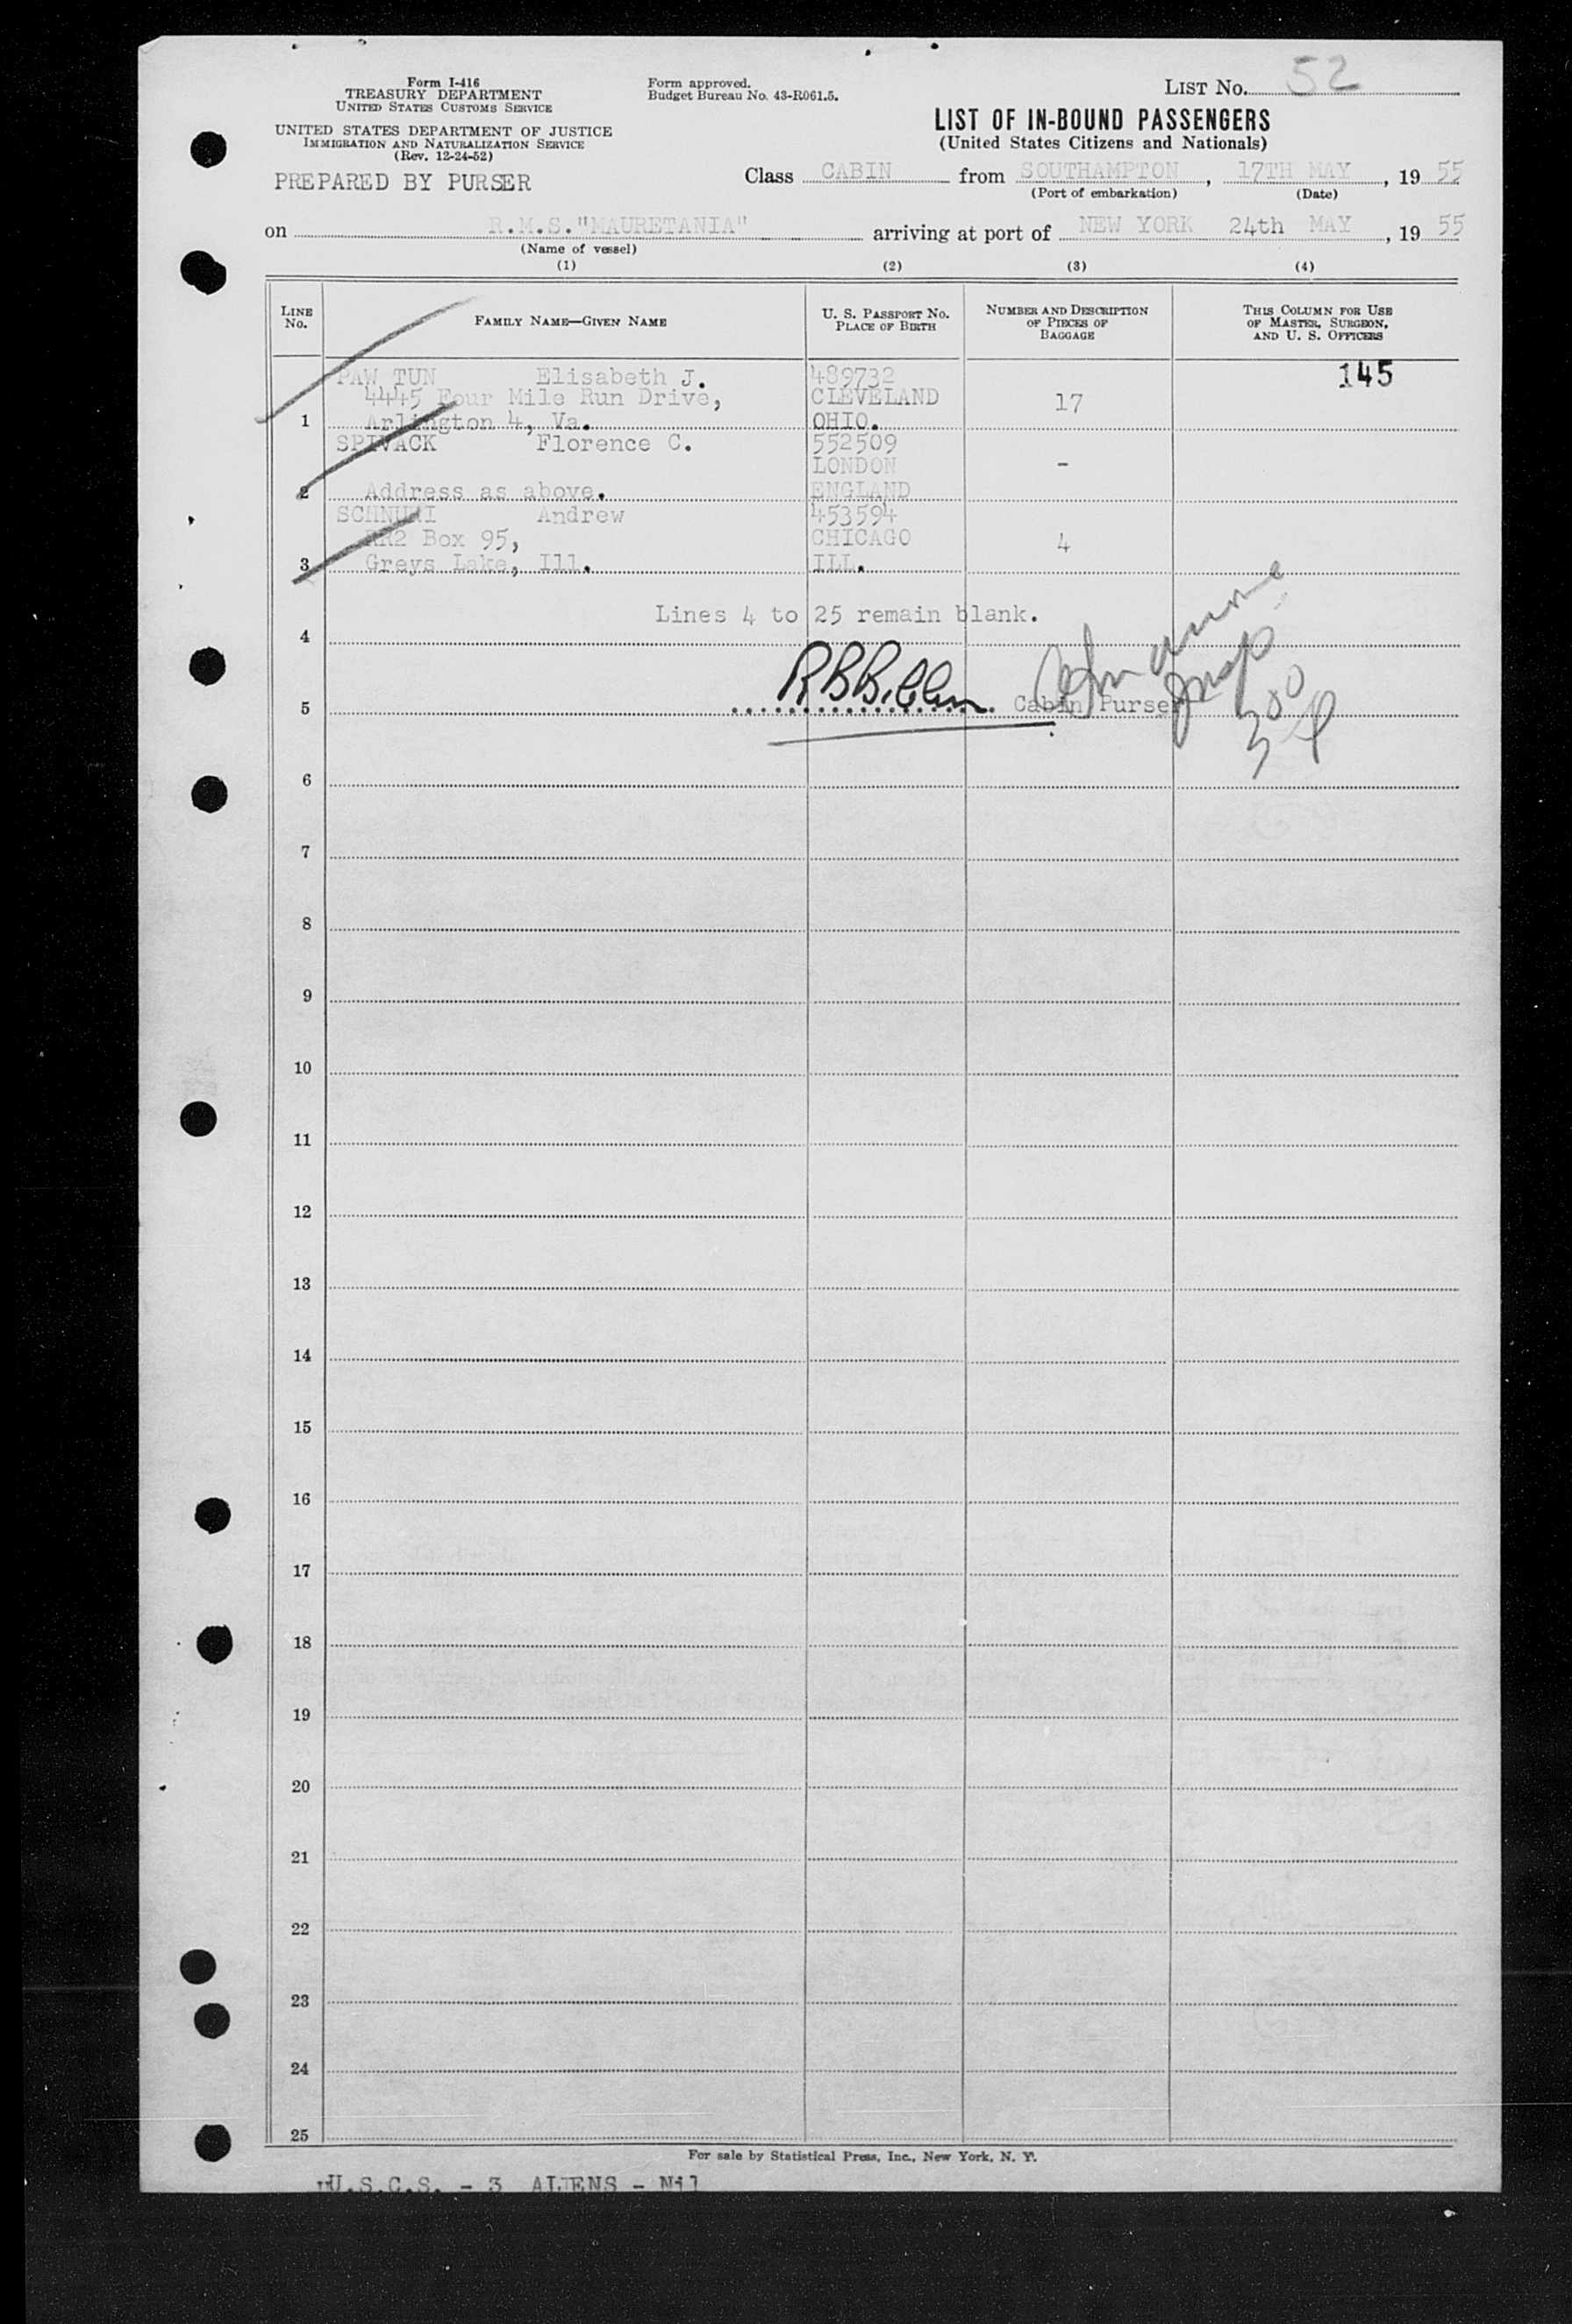 Form I-416
TREASURY DEPARTMENT
UNITED STATES CUSTOMS SERVICE
UNITED STATES DEPARTMENT OF JUSTICE
IMMIGRATION AND NATURALIZATION SERVICE
(Rev. 12-24-52)
PREPARED BY PURSER
Form approved.
Budget Bureau No. 43-R061.5.
LIST No. 52
LIST OF IN-BOUND PASSENGERS
(United States Citizens and Nationals)
Class CABIN from SOUTHAMPTON, 17TH MAY, 19 55
(Port of embarkation) (Date)
on R.M.S."MAURETANIA" arriving at port of NEW YORK 24th MAY, 19 55
(Name of vessel)
(1) (2) (3) (4)
LINE No. FAMILY NAME—GIVEN NAME U. S. PASSPORT No. PLACE OF BIRTH NUMBER AND DESCRIPTION OF PIECES OF BAGGAGE THIS COLUMN FOR USE OF MASTER, SURGEON, AND U. S. OFFICERS
PAW TUN Elisabeth J. 489732 145
4445 Four Mile Run Drive, CLEVELAND 17
1 Arlington 4, Va. OHIO.
SPIVACK Florence C. 552509
LONDON -
2 Address as above. ENGLAND
Andrew 453594
RR2 Box 95, CHICAGO 4
3 Greys Lake, Ill. ILL.
Lines 4 to 25 remain blank.
4
5 Cabin Purser
300
6
7
8
9
10
11
12
13
14
15
16
17
18
19
20
21
22
23
24
25
For sale by Statistical Press, Inc., New York, N. Y.
U.S.C.S. - 3 ALIENS - Nil